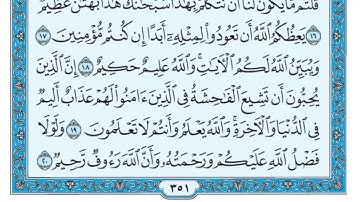 قُلْتُم مَّا يَكُونُ لَنَا أَن نَّتَكَلَّمَ بِهَٰذَا سُبْحَٰنَكَ هَٰذَا بُهْتَٰنٌ عَظِيمٌ
١٦ يَعِظُكُمُ ٱللَّهُ أَن تَعُودُوا۟ لِمِثْلِهِۦٓ أَبَدًا إِن كُنتُم مُّؤْمِنِينَ ١٧
وَيُبَيِّنُ ٱللَّهُ لَكُمُ ٱلْءَايَٰتِ وَٱللَّهُ عَلِيمٌ حَكِيمٌ ١٨ إِنَّ ٱلَّذِينَ
يُحِبُّونَ أَن تَشِيعَ ٱلْفَٰحِشَةُ فِى ٱلَّذِينَ ءَامَنُوا۟ لَهُمْ عَذَابٌ أَلِيمٌ
فِى ٱلدُّنْيَا وَٱلْءَاخِرَةِ وَٱللَّهُ يَعْلَمُ وَأَنتُمْ لَا تَعْلَمُونَ ١٩ وَلَوْلَا
فَضْلُ ٱللَّهِ عَلَيْكُمْ وَرَحْمَتُهُۥ وَأَنَّ ٱللَّهَ رَءُوفٌ رَّحِيمٌ ٢٠
٣٥١